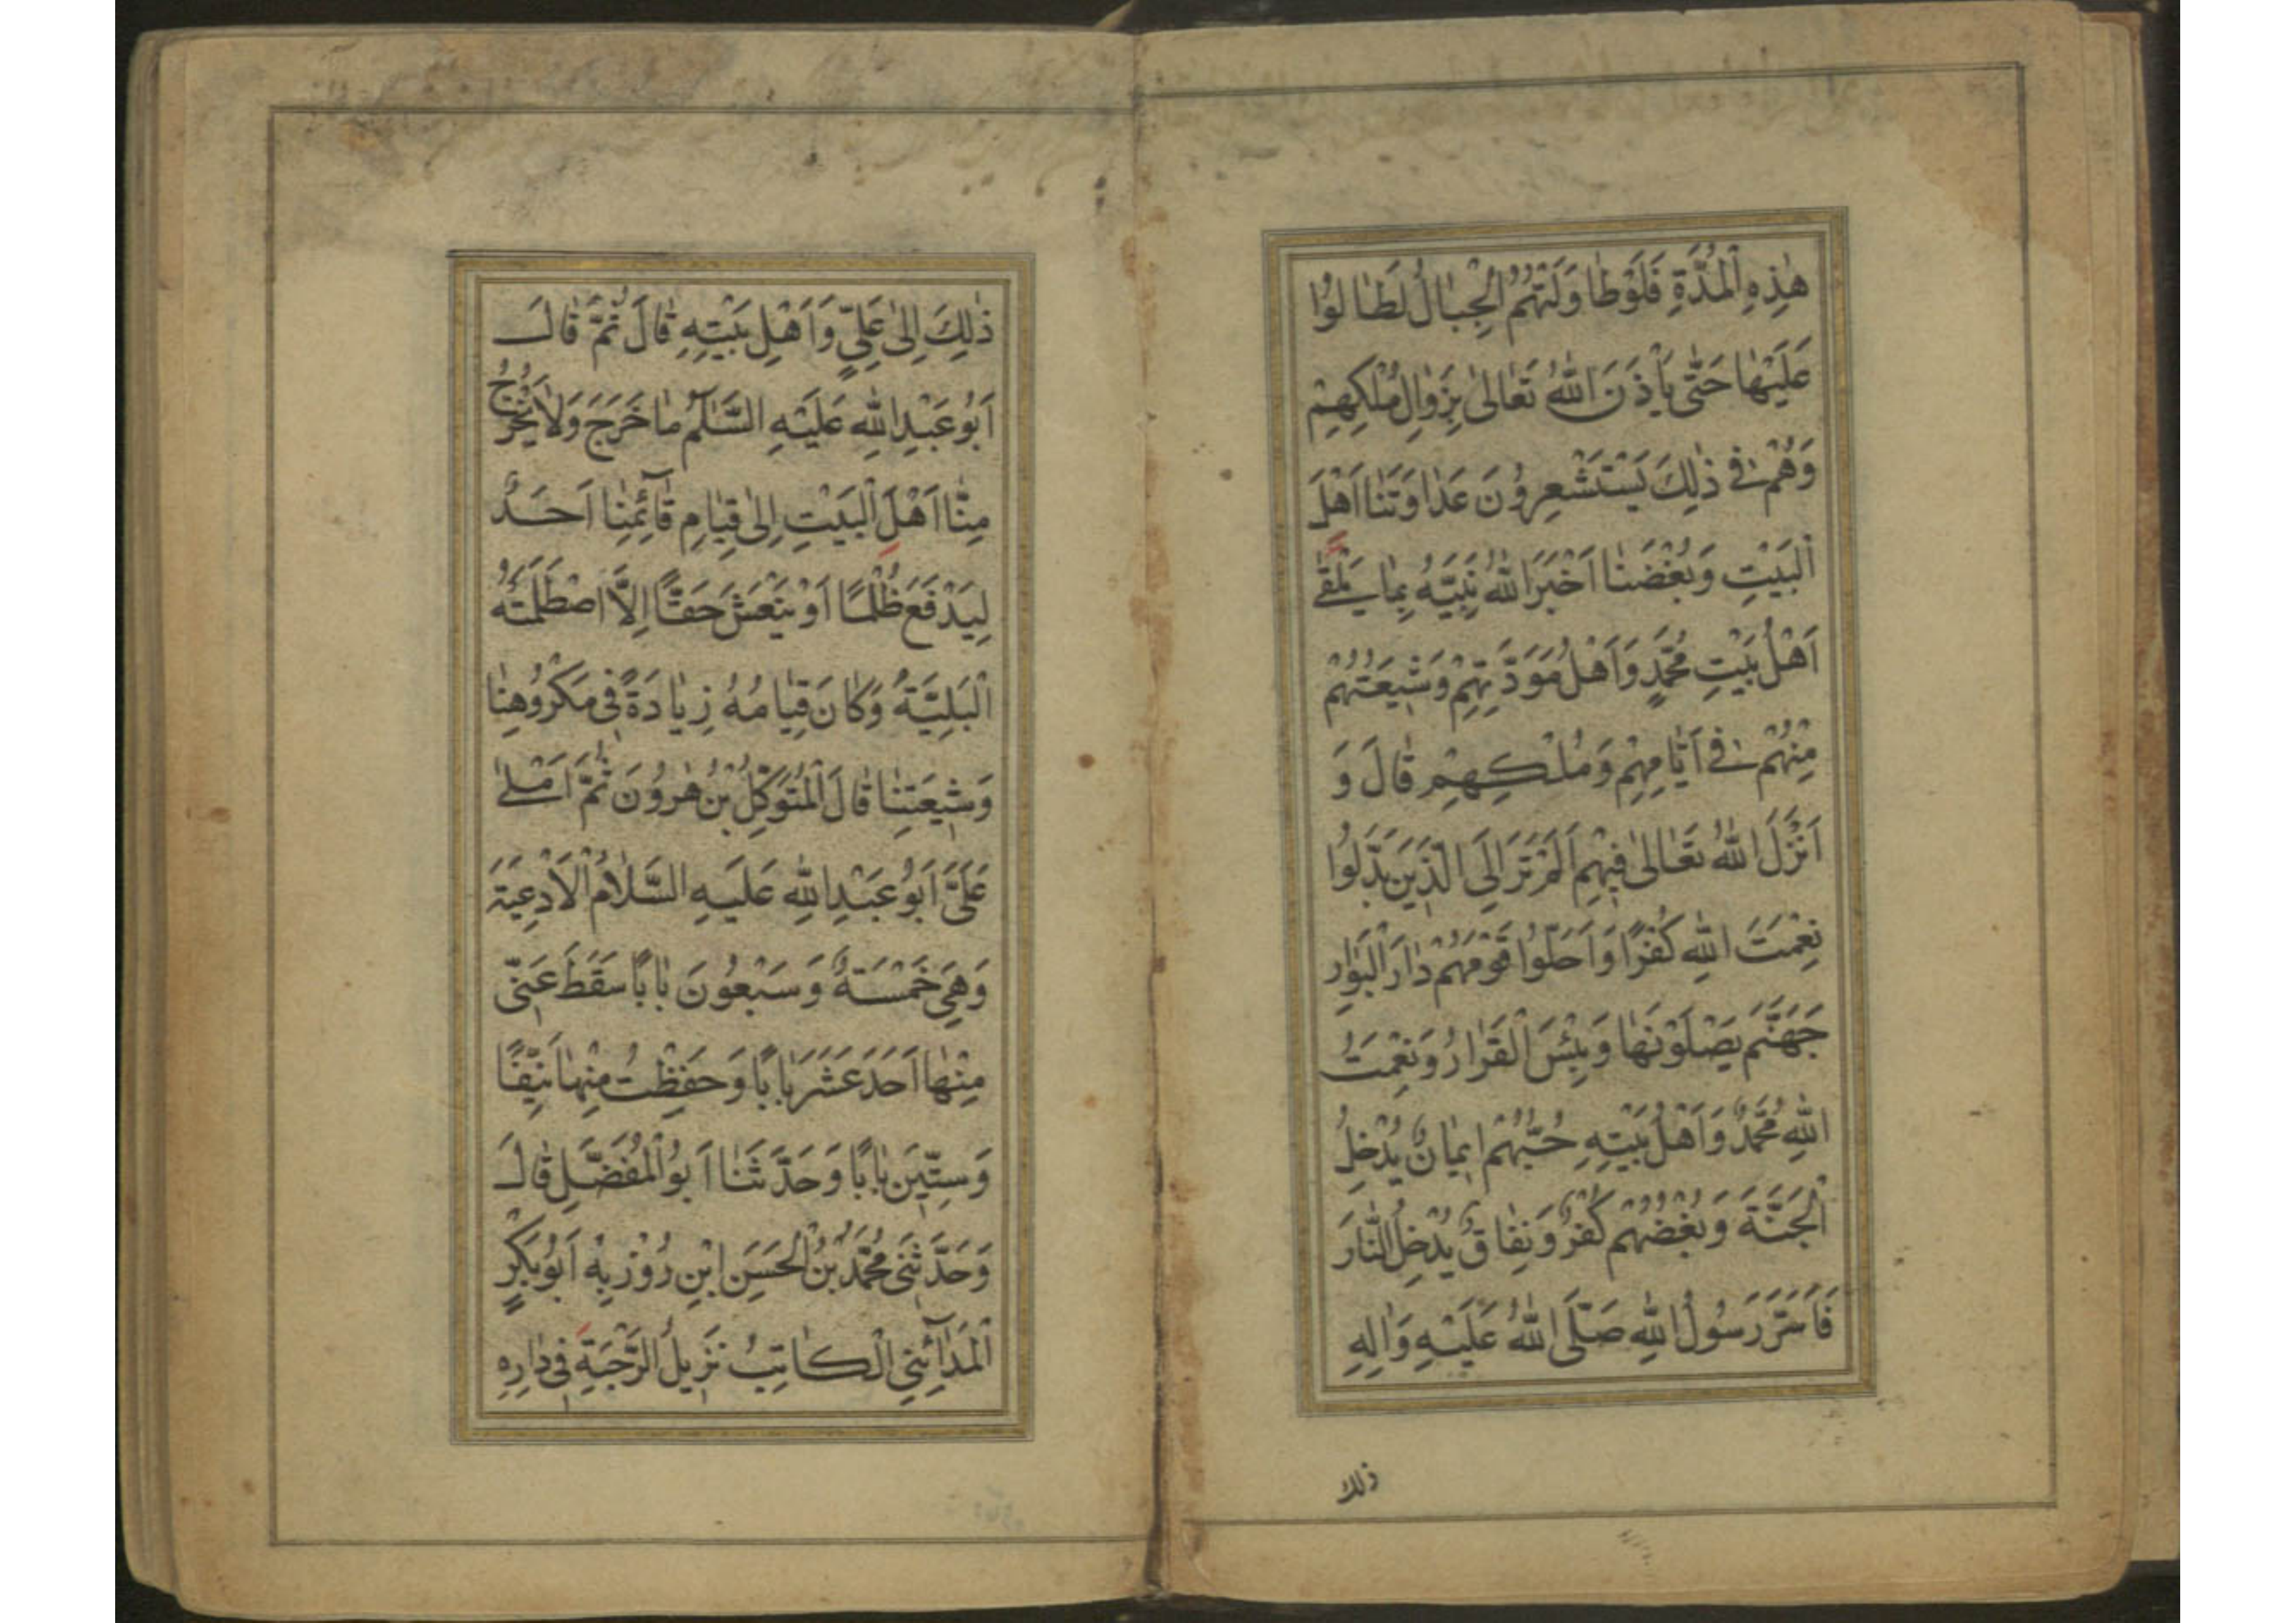 هٰذِهِ الْمُدَّةِ فَلَوْطَا وَلَتْهُمُ الْجِبَالُ لَطَالُوْا
عَلَيْهَا حَتّٰى يَأْذَنَ اللّٰهُ تَعَالىٰ بِزَوٰالِ مُلْكِهِمْ
وَهُمْ فِى ذٰلِكَ يَسْتَشْعِرُونَ عَدَاوَتَنَا اَهْلَ
الْبَيْتِ وَبُغْضَنَا اَخْبَرَ اللّٰهُ نَبِيَّهُ بِمَا يَلْقٰى
اَهْلُ بَيْتِ مُحَمَّدٍ وَاَهْلُ مَوَدَّتِهِمْ وَشِيعَتُهُمْ
مِنْهُمْ فِى اَيَّامِهِمْ وَمُلْكِهِمْ قَالَ وَ
اَنْزَلَ اللّٰهُ تَعَالىٰ فِيهِمْ اَلَمْ تَرَ اِلَى الَّذِينَ بَدَّلُوا
نِعْمَتَ اللّٰهِ كُفْرًا وَاَحَلُّوا قَوْمَهُمْ دَارَ الْبَوٰارِ
جَهَنَّمَ يَصْلَوْنَهَا وَبِئْسَ الْقَرَارُ وَنِعْمَتُ
اللّٰهِ مُحَمَّدٌ وَاَهْلُ بَيْتِهِ حُبُّهُمْ اِيمَانٌ يُدْخِلُ
الْجَنَّةَ وَبُغْضُهُمْ كُفْرٌ وَنِفَاقٌ يُدْخِلُ النَّارَ
فَاَسَرَّ رَسُولُ اللّٰهِ صَلَّى اللّٰهُ عَلَيْهِ وَاٰلِهِ
ذلك
ذٰلِكَ اِلىٰ عَلِيٍّ وَاَهْلِ بَيْتِهِ قَالَ ثُمَّ قَالَ
اَبُو عَبْدِ اللّٰهِ عَلَيْهِ السَّلٰمُ مَا خَرَجَ وَلَا يَخْرُجُ
مِنَّا اَهْلَ الْبَيْتِ اِلىٰ قِيَامِ قَآئِمِنَا اَحَدٌ
لِيَدْفَعَ ظُلْمًا اَوْ يَنْعَشَ حَقًّا اِلَّا اصْطَلَمَتْهُ
الْبَلِيَّةُ وَكَانَ قِيَامُهُ زِيَادَةً فِى مَكْرُوهِنَا
وَشِيعَتِنَا قَالَ الْمُتَوَكِّلُ بْنُ هٰرُونَ ثُمَّ اَمْلىٰ
عَلَىَّ اَبُو عَبْدِ اللّٰهِ عَلَيْهِ السَّلَامُ الْاَدْعِيَةَ
وَهِيَ خَمْسَةٌ وَسَبْعُونَ بَابًا سَقَطَ عَنّى
مِنْهَا اَحَدَ عَشَرَ بَابًا وَحَفِظْتُ مِنْهَا نَيِّفًا
وَسِتِّينَ بَابًا وَحَدَّثَنَا اَبُو الْمُفَضَّلِ قَالَ
وَحَدَّثَنِى مُحَمَّدُ بْنُ الْحَسَنِ ابْنِ رُوْزْبِهْ اَبُو بَكْرٍ
الْمَدَآئِنِىُّ الْكَاتِبُ نَزِيلُ الرَّحْبَةِ فِى دَارِهِ